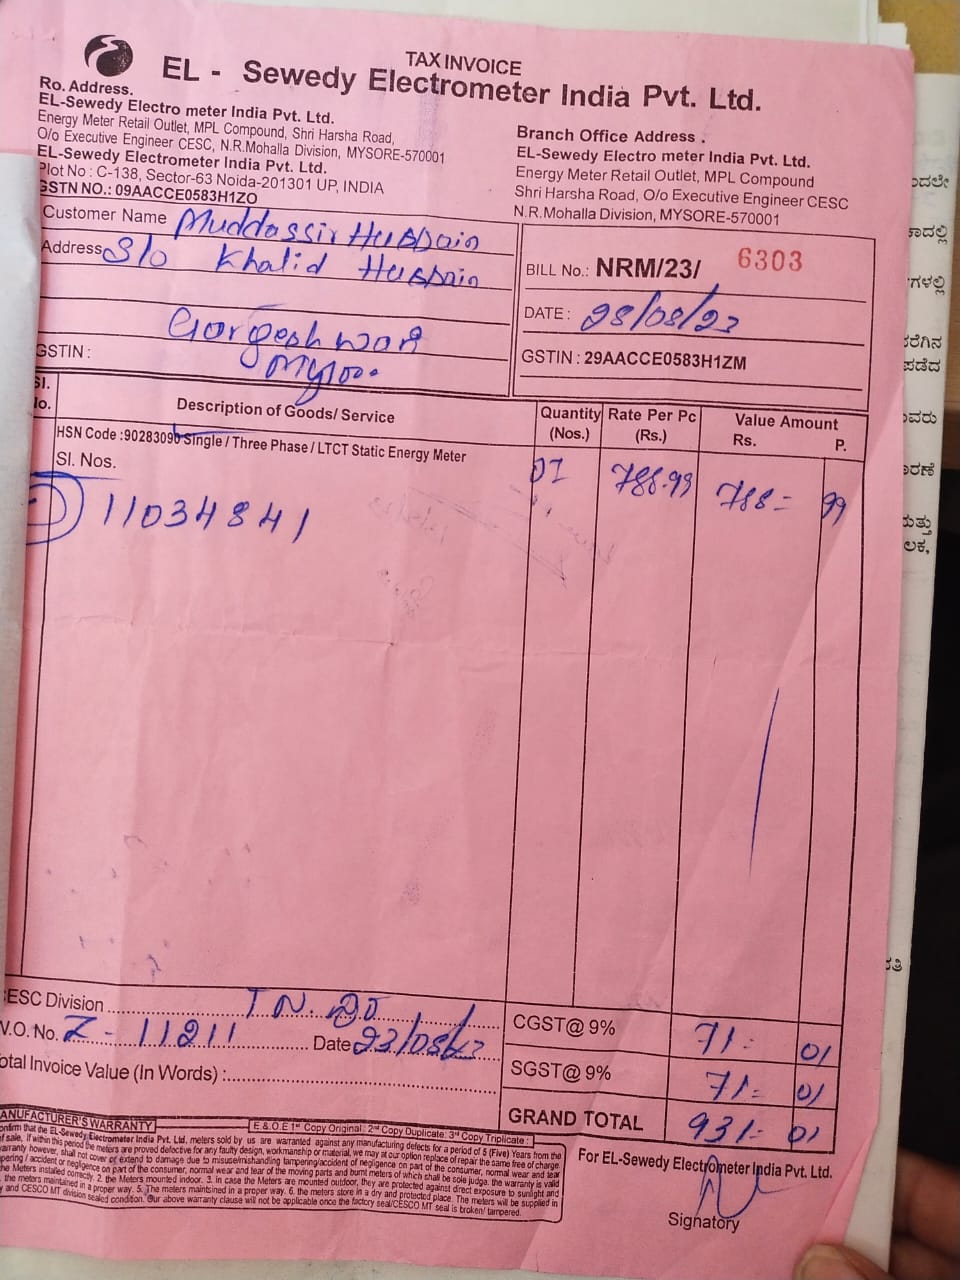 TAX INVOICE
EL - Sewedy Electrometer India Pvt. Ltd.
Ro. Address.
EL-Sewedy Electro meter India Pvt. Ltd.
Energy Meter Retail Outlet, MPL Compound, Shri Harsha Road,
O/o Executive Engineer CESC, N.R.Mohalla Division, MYSORE-570001
EL-Sewedy Electrometer India Pvt. Ltd.
Plot No : C-138, Sector-63 Noida-201301 UP, INDIA
GSTN NO.: 09AACCE0583H1ZO
Branch Office Address .
EL-Sewedy Electro meter India Pvt. Ltd.
Energy Meter Retail Outlet, MPL Compound
Shri Harsha Road, O/o Executive Engineer CESC
N.R.Mohalla Division, MYSORE-570001
Customer Name Muddassir Hussain
Address S/o Khalid Hussain
Gargeshwari
GSTIN :
BILL No.: NRM/23/ 6303
DATE : 28/08/23
GSTIN : 29AACCE0583H1ZM
Sl. No. Description of Goods/ Service Quantity (Nos.) Rate Per Pc (Rs.) Value Amount Rs. P.
HSN Code :90283090 Single / Three Phase / LTCT Static Energy Meter
Sl. Nos. 01 788.99 788= 99
1) 11034841
CESC Division T N.
W.O. No. Z-11211 Date 23/08/23
Total Invoice Value (In Words) :
CGST@ 9% 71= 01
SGST@ 9% 71= 01
GRAND TOTAL 931= 01
MANUFACTURER'S WARRANTY
E & O.E 1st Copy Original : 2nd Copy Duplicate: 3rd Copy Triplicate :
confirm that the EL-Sewedy Electrometer India Pvt. Ltd. meters sold by us are warranted against any manufacturing defects for a period of 5 (Five) Years from the
of sale, If within this period the meters are proved defective for any faulty design, workmanship or material, we may at our option replace of repair the same free of charge.
warranty however, shall not cover or extend to damage due to misuse/mishandling tampering/accident of negligence on part of the consumer, normal wear and tear
tampering / accident or negligence on part of the consumer, normal wear and tear of the moving parts and burnt meters of which shall be sole judge. the warranty is valid
the Meters installed correctly. 2. the Meters mounted indoor. 3. in case the Meters are mounted outdoor, they are protected against direct exposure to sunlight and
the meters maintained in a proper way. 5. The meters maintsined in a proper way. 6. the meters store in a dry and protected place. The meters will be supplied in
and CESCO MT division sealed condition. Our above warranty clause will not be applicable once the factory seal/CESCO MT seal is broken/ tampered.
For EL-Sewedy Electrometer India Pvt. Ltd.
Signatory